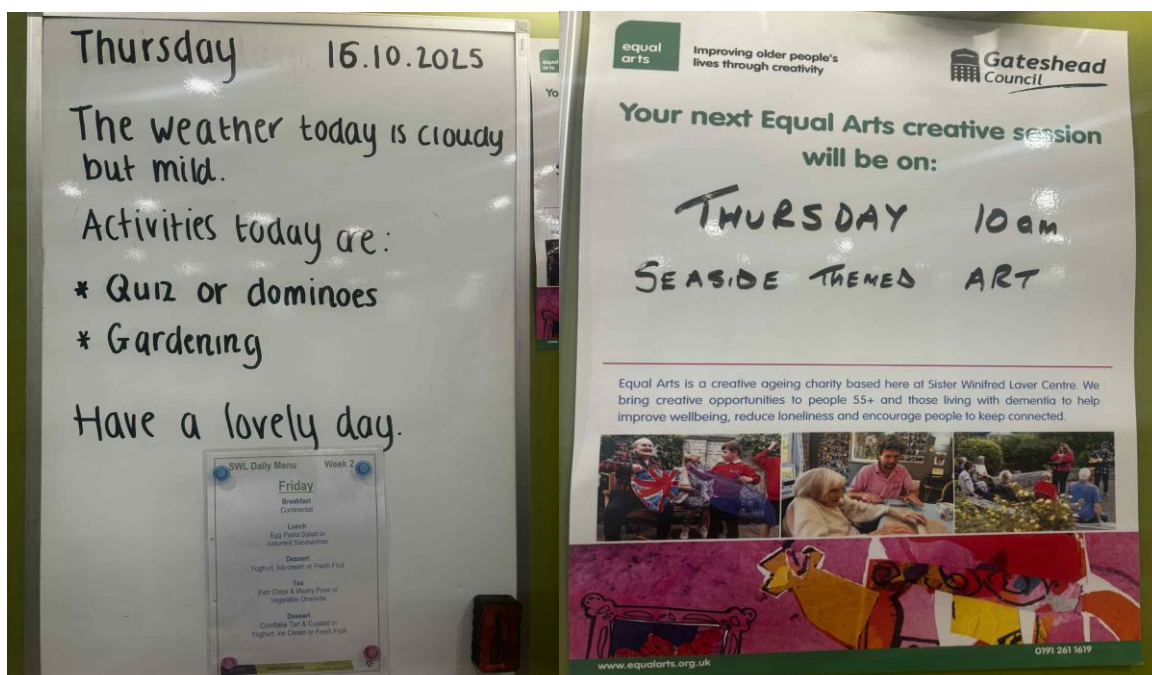 Thursday 16.10.2025
The weather today is cloudy
but mild.
Activities today are:
* Quiz or dominoes
* Gardening
Have a lovely day.
SWL Daily Menu Week 2
Friday
Breakfast
Continental
Lunch
Egg Pasta Salad or
Assorted Sandwiches
Dessert
Yoghurt, Ice cream or Fresh Fruit
Tea
Fish Chips & Mushy Peas or
Vegetable Omelette
Dessert
Cornflake Tart & Custard or
Yoghurt, Ice Cream or Fresh Fruit
equal
arts
Yo
equal
arts
Improving older people's
lives through creativity
Gateshead
Council
Your next Equal Arts creative session
will be on:
THURSDAY 10am
SEASIDE THEMED ART
Equal Arts is a creative ageing charity based here at Sister Winifred Laver Centre. We
bring creative opportunities to people 55+ and those living with dementia to help
improve wellbeing, reduce loneliness and encourage people to keep connected.
www.equalarts.org.uk
0191 261 1619